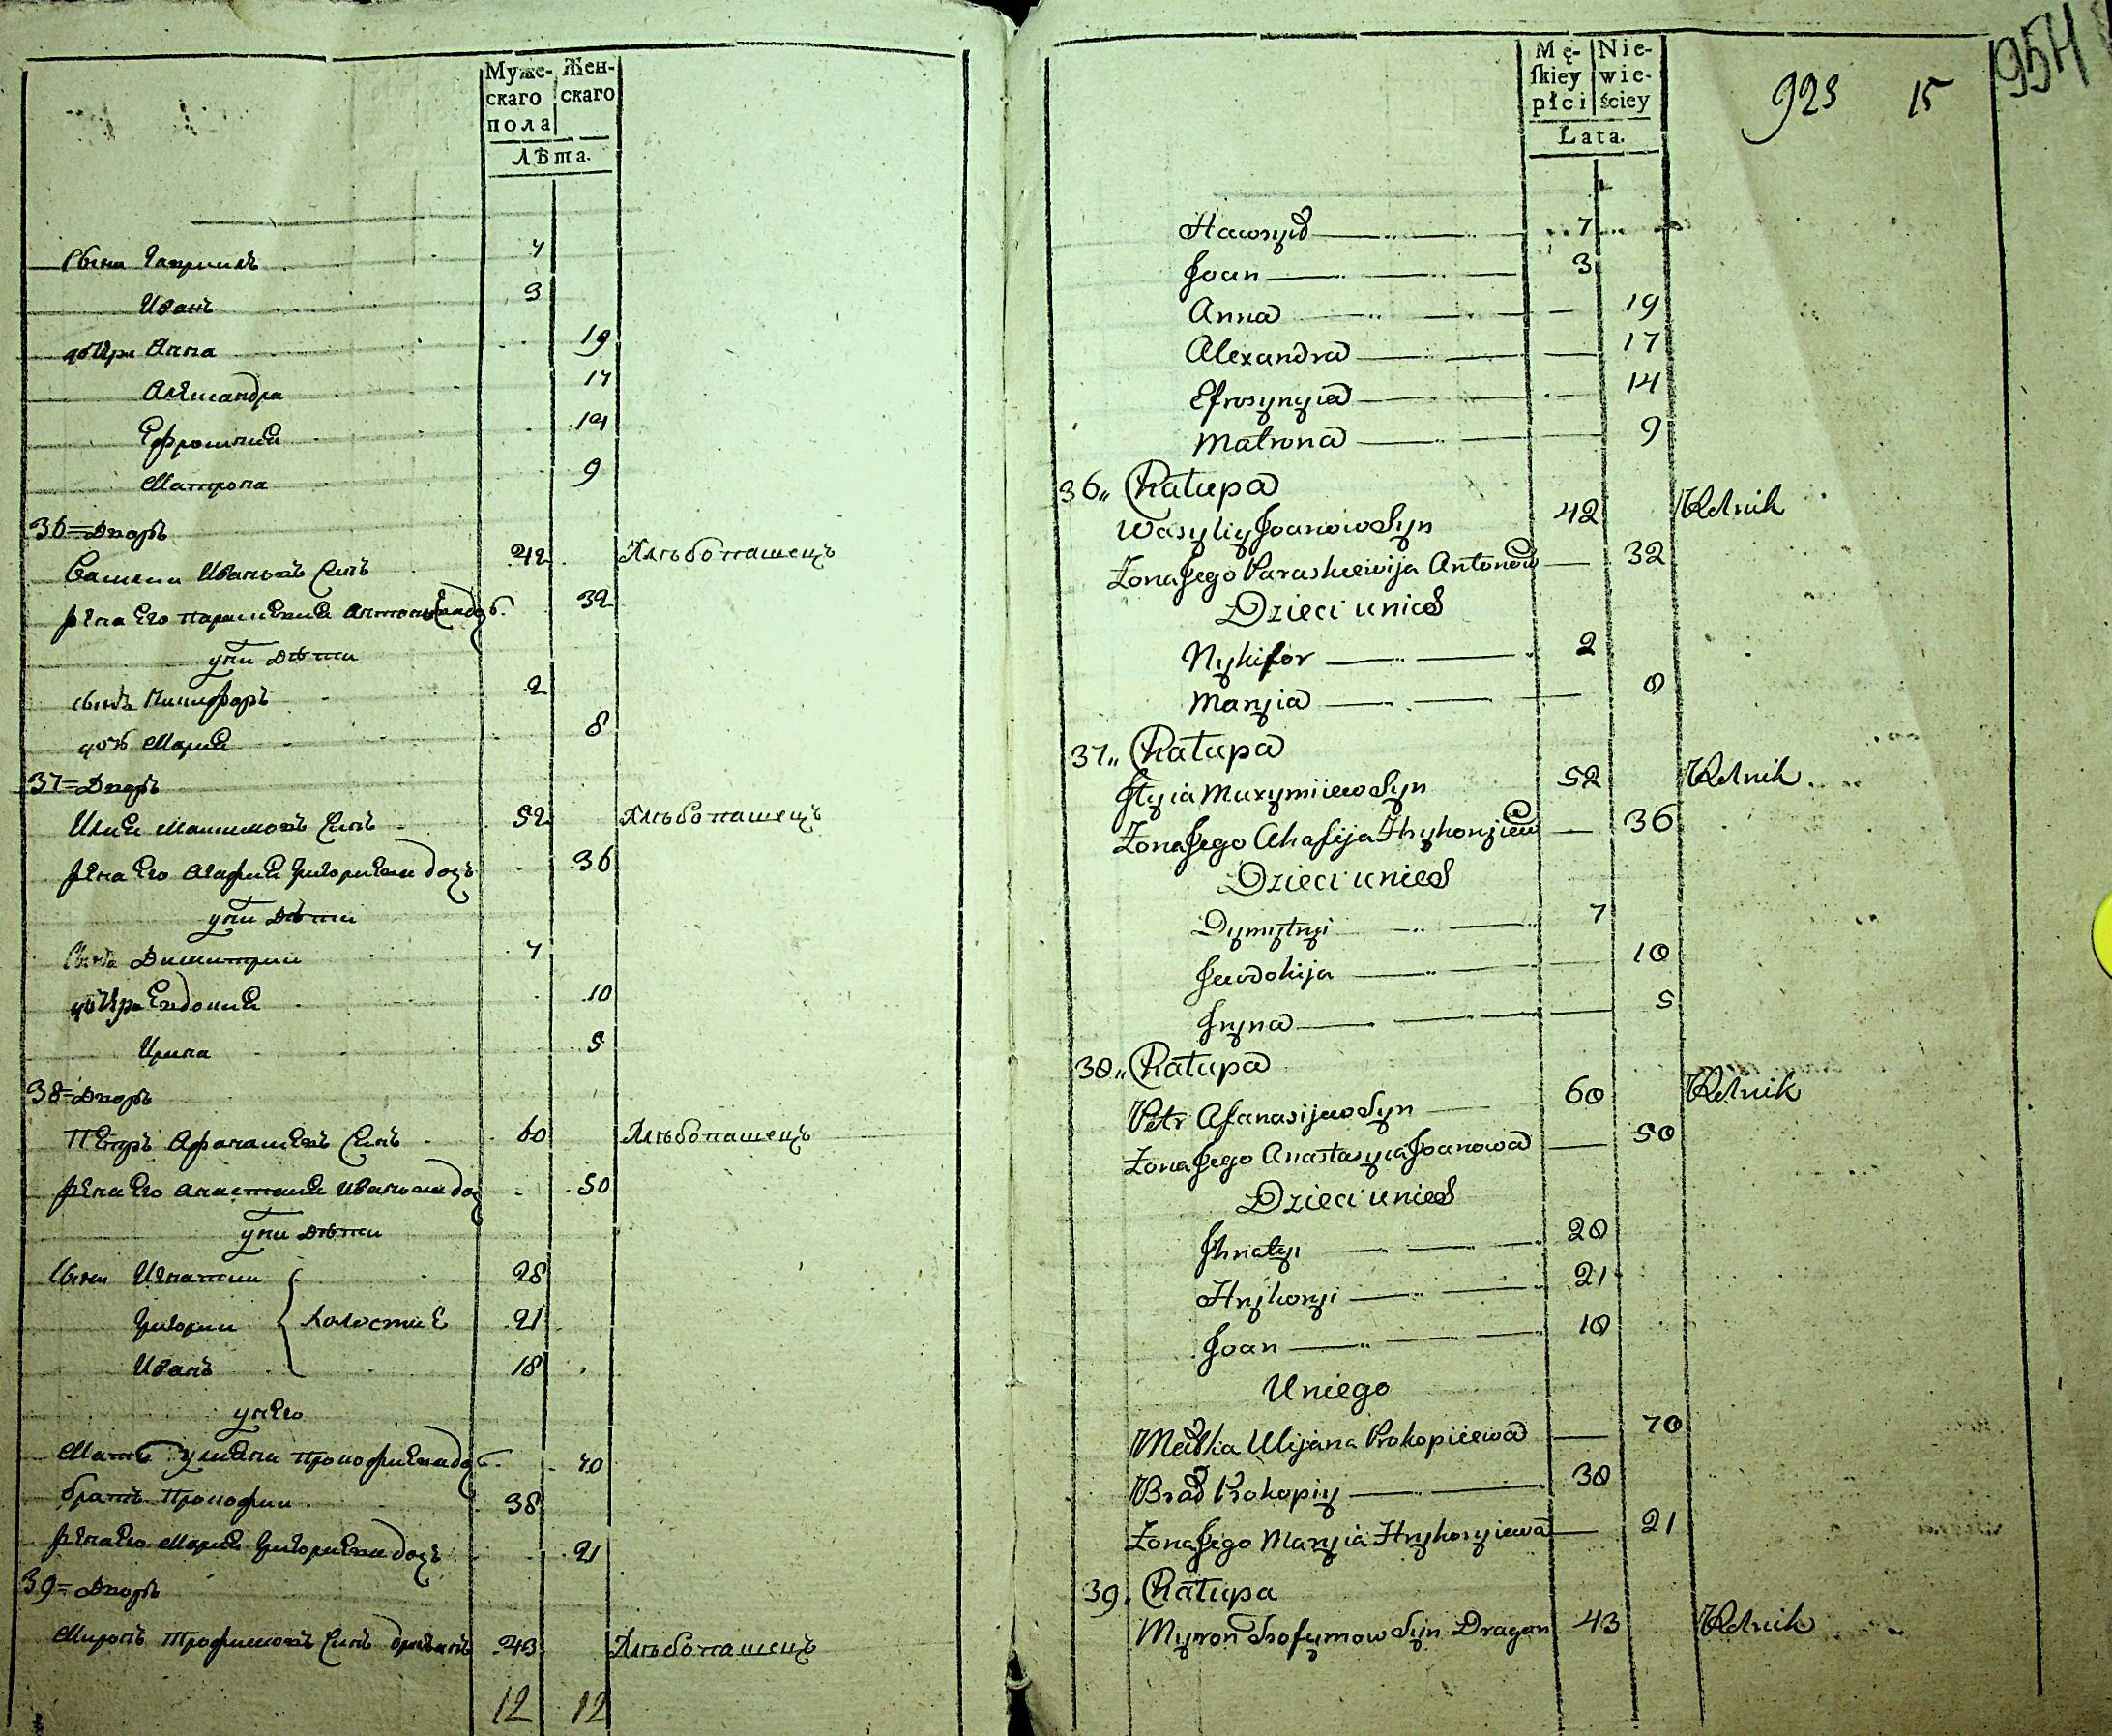 Муже-
скаго
пола
Жен-
скаго
Лѣта.
Сыны Гаврiилъ 7
Иванъ 3
дочери Анна 19
Александра 17
Ефросинiя 14
Матрона 9
36=Дворъ
Василий Ивановъ Сынъ 42 Хлѣбопашецъ
жена Его Параскевiя Антонова доч. 32
у них Дѣти
сынъ Никифоръ 2
дочь Марiя 8
37=Дворъ
Илия Максимовъ Сынъ 52 Хлѣбопашецъ
жена Его Агафия Григориева дочъ 36
у них Дѣти
Сынъ Димитрий 7
дочери Евдокия 10
Ирина 5
38=Дворъ
Петръ Афанасиевъ Сынъ 60 Хлѣбопашецъ
жена Его Анастасия Иванова доч 50
у них Дѣти
Сыны Игнатий 28
Григорий холостиЕ 21
Иванъ 18
у него
Мать Улияна Прокофиева доч. 70
братъ Прокофий 38
жена Его Мария Григориева дочъ 21
39=Дворъ
Миронъ Трофимовъ Сынъ 43 Хлѣбопашецъ
12 12
Mę-
ſkiey
płci
Nie-
wie-
ściey
Lata.
923 15 954
Hawryił 7
Joan 3
Anna 19
Alexandra 17
Efrosynyia 14
Matrona 9
36„ Chałupa
Wasyliy Joanow Syn 42 Rolnik
Żona Jego Paraskiewija Antonow 32
Dzieci unich
Nykifor 2
Maryia 8
37„ Chałupa
Jlyia Maxymiiew Syn 52 Rolnik
Żona Jego Ahafija Hryhoryiew 36
Dzieci unich
Dymytryi 7
Jewdokija 10
Jryna 5
38„ Chałupa
Petr Afanasijew Syn 60 Rolnik
Żona Jego Anastasyia Joanowa 50
Dzieci unich
Jhnatyi 28
Hryhoryi 21
Joan 18
Uniego
Matka Ulijana Prokopiiewa 70
Brat Prokopiy 38
Żona Jego Maryia Hryhoryiewa 21
39„ Chałupa
Myron Trofymow Syn Dragan 43 Rolnik